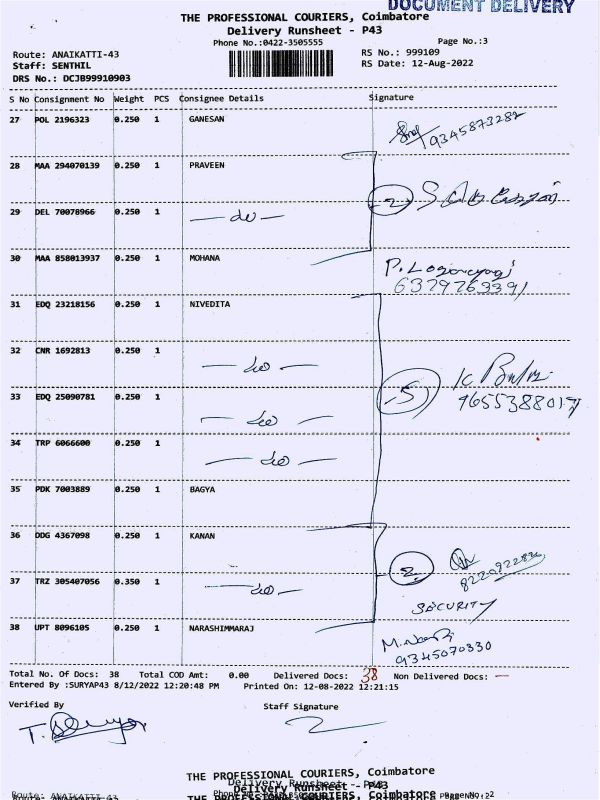 DOCUMENT DELIVERY
THE PROFESSIONAL COURIERS, Coimbatore
Delivery Runsheet - P43
Phone No.:0422-3505555 Page No.:3
Route: ANAIKATTI-43 RS No.: 999109
Staff: SENTHIL RS Date: 12-Aug-2022
DRS No.: DCJB99910903
S No Consignment No Weight PCS Consignee Details Signature
27 POL 2196323 0.250 1 GANESAN
9345873282
28 MAA 294070139 0.250 1 PRAVEEN
2
29 DEL 70078966 0.250 1 — do —
30 MAA 858013937 0.250 1 MOHANA
6379763391
31 EDQ 23218156 0.250 1 NIVEDITA
32 CNR 1692813 0.250 1 — do —
33 EDQ 25090781 0.250 1 — do —
5
9655388017
34 TRP 6066600 0.250 1 — do —
35 PDK 7003889 0.250 1 BAGYA
36 DDG 4367098 0.250 1 KANAN
2
37 TRZ 305407056 0.350 1 — do —
SECURITY
38 UPT 8096105 0.250 1 NARASHIMMARAJ
9345070330
Total No. Of Docs: 38 Total COD Amt: 0.00 Delivered Docs: 38 Non Delivered Docs: —
Entered By :SURYAP43 8/12/2022 12:20:48 PM Printed On: 12-08-2022 12:21:15
Verified By Staff Signature
THE PROFESSIONAL COURIERS, Coimbatore
Delivery Runsheet - P43
Route: ANAIKATTI-43